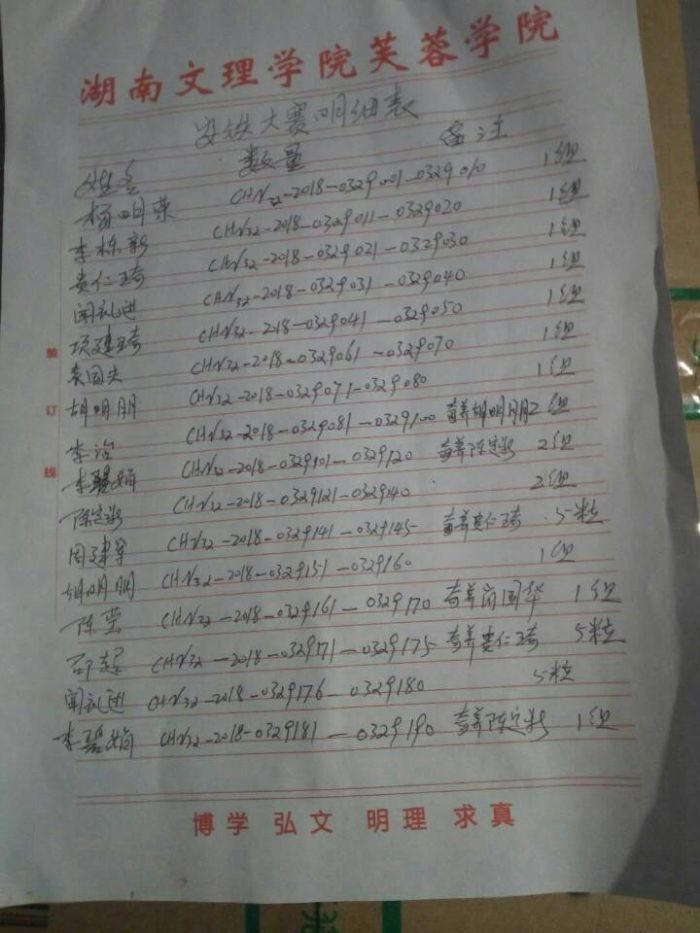 湖南文理学院芙蓉学院
安铁大赛明细表
姓名 数量 备注
杨明荣 CHN32-2018-0329001-0329010 1组
李栋新 CHN32-2018-0329011-0329020 1组
娄仁琦 CHN32-2018-0329021-0329030 1组
闻礼进 CHN32-2018-0329031-0329040 1组
项建琦 CHN32-2018-0329041-0329050 1组
袁国夫 CHN32-2018-0329061-0329070 1组
胡明朋 CHN32-2018-0329071-0329080 1组
李治 CHN32-2018-0329081-0329100 寄养胡明朋 2组
李碧娟 CHN32-2018-0329101-0329120 寄养陈定彩 2组
陈定彩 CHN32-2018-0329121-0329140 2组
周建军 CHN32-2018-0329141-0329145 寄养娄仁琦 5粒
胡明朋 CHN32-2018-0329151-0329160 1组
陈莹 CHN32-2018-0329161-0329170 寄养俞国华 1组
邵超 CHN32-2018-0329171-0329175 寄养娄仁琦 5粒
闻礼进 CHN32-2018-0329176-0329180 5粒
李碧娟 CHN32-2018-0329181-0329190 寄养陈定彩 1组
装
订
线
博学 弘文 明理 求真